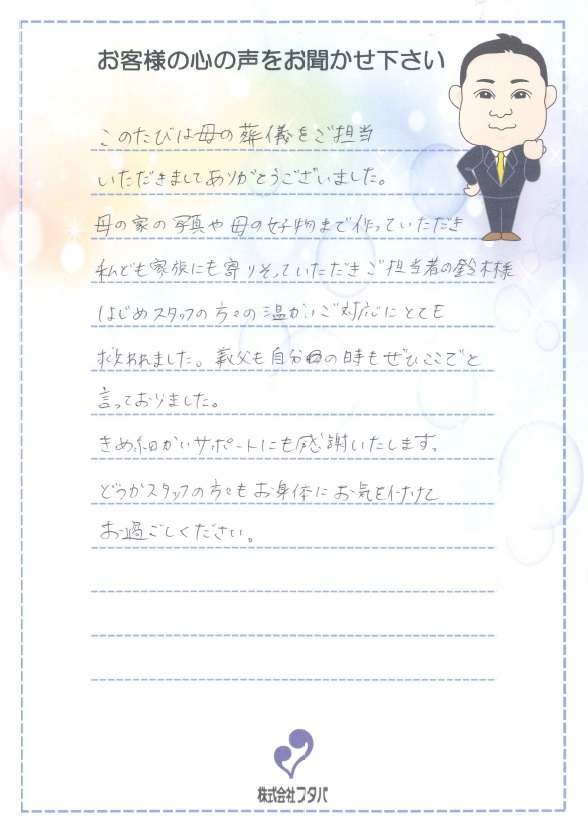 お客様の心の声をお聞かせ下さい
このたびは母の葬儀をご担当
いただきましてありがとうございました。
母の家の写真や母の好物まで作っていただき
私ども家族にも寄りそっていただきご担当者の鈴木様
はじめスタッフの方々の温かいご対応にとても
救われました。義父も自分の時もぜひここでと
言っておりました。
きめ細かいサポートにも感謝いたします。
どうかスタッフの方々もお身体にお気を付けて
お過ごしください。
株式会社フタバ